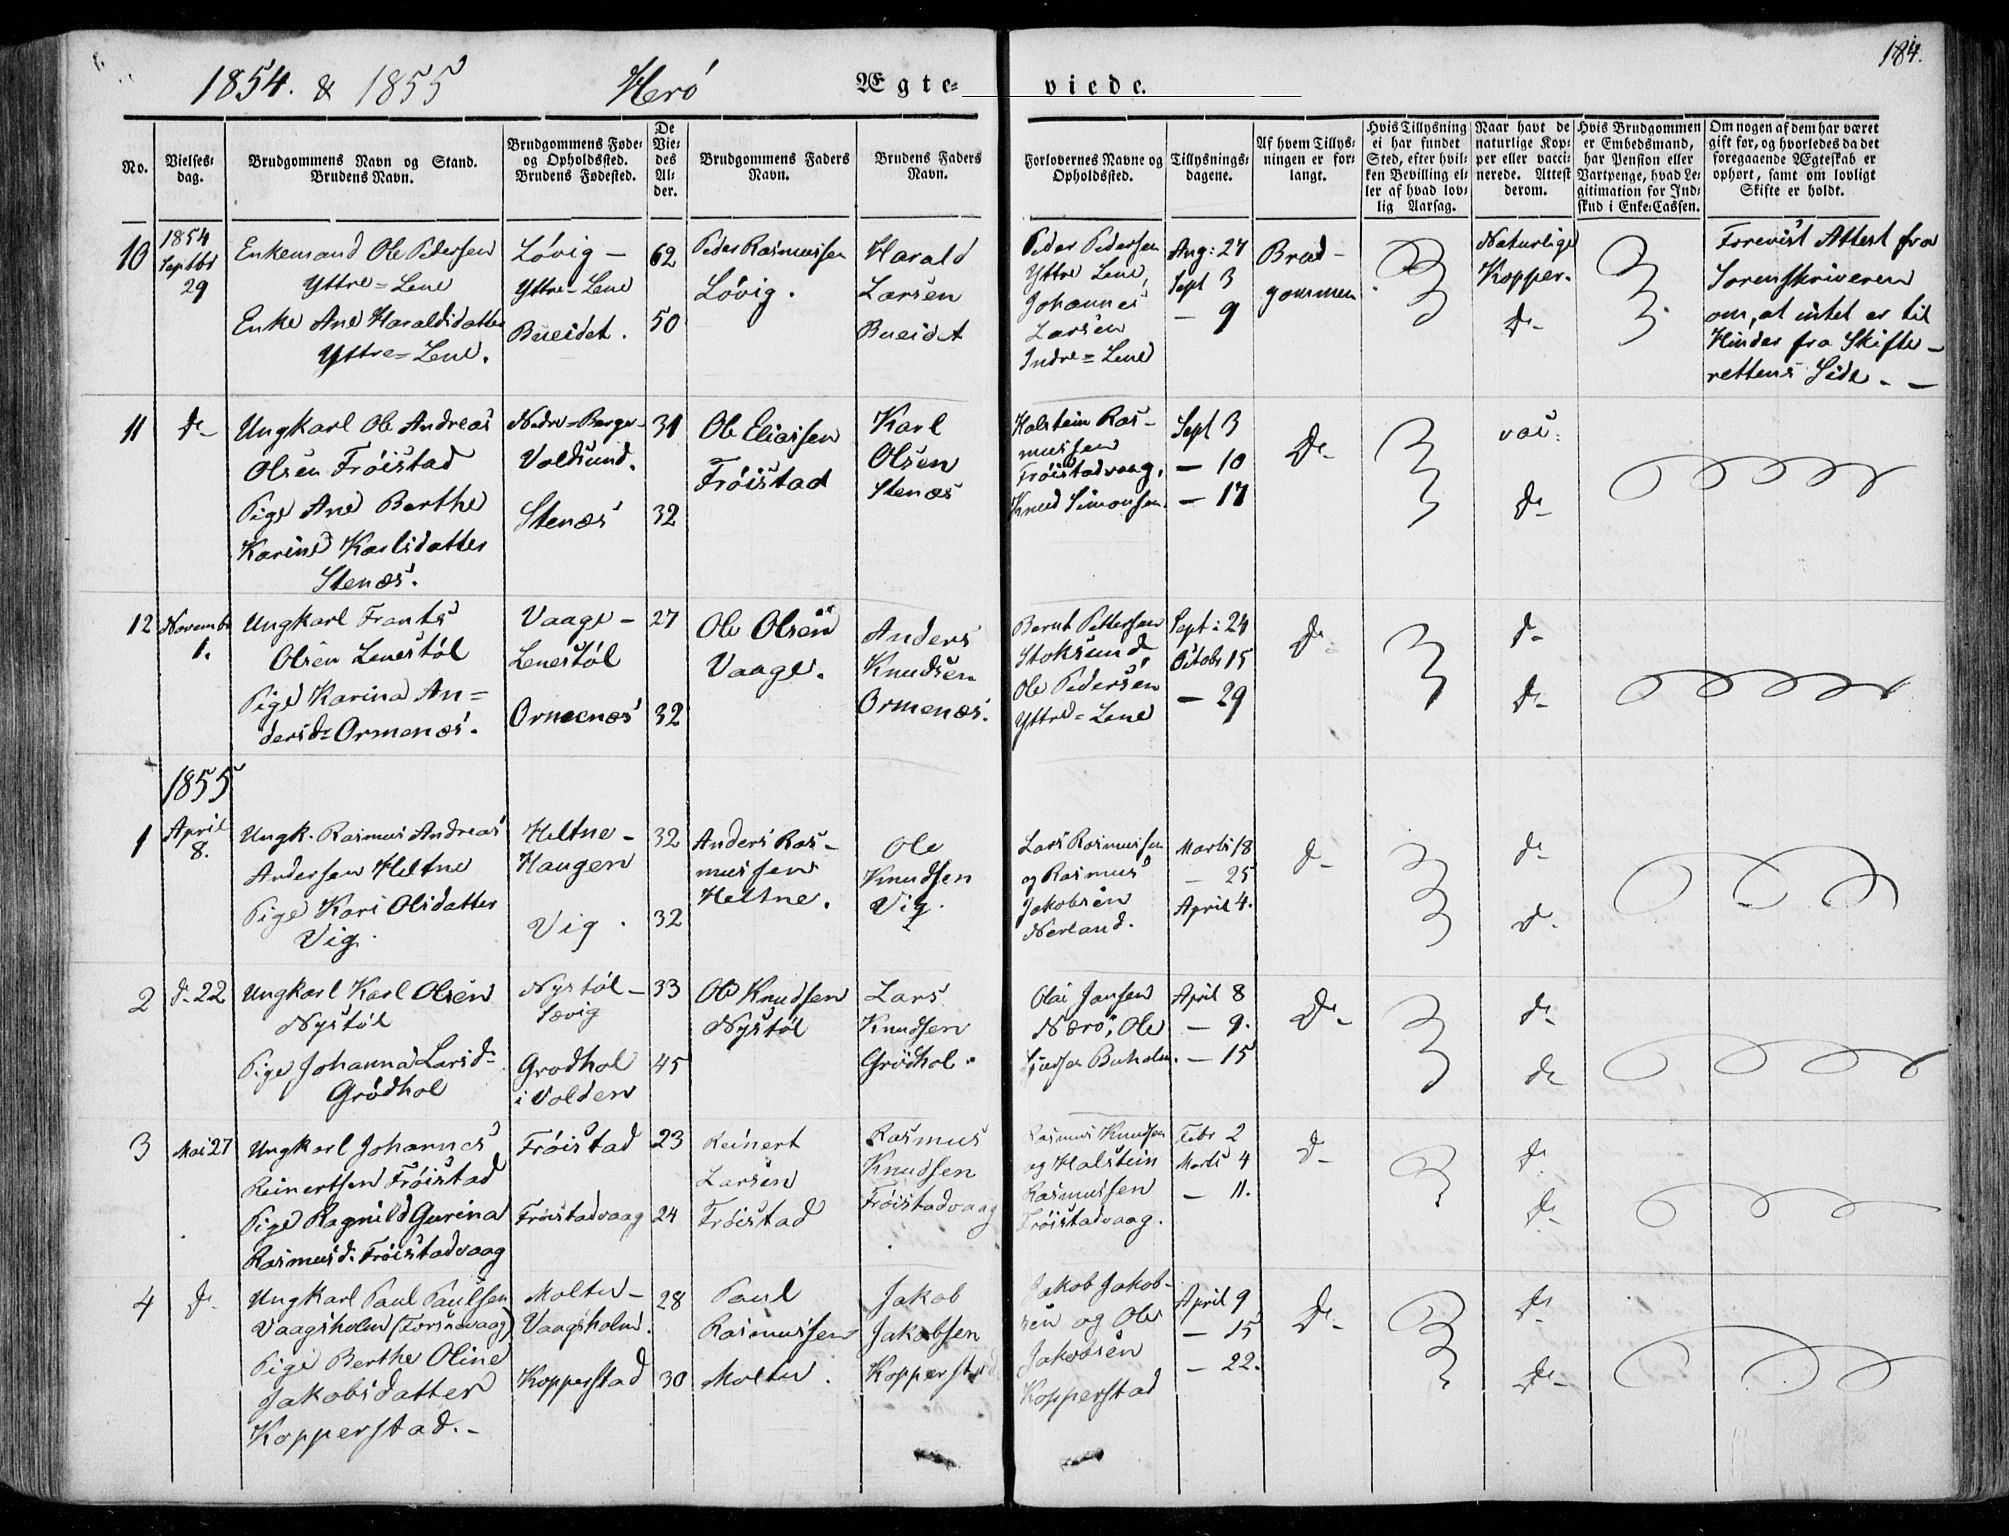 184.
1854. & 1855 Herö Ægte- viede.
No.
Vielses-
dag.
Brudgommens Navn og Stand.
Brudens Navn.
Brudgommens Føde-
og Opholdssted.
Brudens Fødested.
De
Vie-
des
Al-
der.
Brudgommens Faders
Navn.
Brudens Faders
Navn.
Forlovernes Navne og
Opholdssted.
Tillysnings-
dagene.
Af hvem Tillys-
ningen er for-
langt.
Hvis Tillysning
ei har fundet
Sted, efter hvil-
ken Bevilling el-
ler af hvad lov-
lig Aarsag.
Naar havt de
naturlige Kop-
per eller vacci-
nerede. Attest
derom.
Hvis Brudgommen
er Embedsmand,
har Pension eller
Vartpenge, hvad Le-
gitimation for Ind-
skud i Enke-Cassen.
Om nogen af dem har været
gift før, og hvorledes da det
foregaaende Ægteskab er
ophørt, samt om lovligt
Skifte er holdt.
10
1854
Septbr
29
Enkemand Ole Pedersen
Yttre=Lene
Enke Ane Haraldsdatter
Yttre=Lene.
Lövig -
Yttre=Lene
Bueidet.
62
50
Peder Rasmussen
Lövig.
Harald
Larsen
Bueidet
Peder Pedersen
Yttre Lene,
Johannes
Larsen
Indre=Lene
Aug: 27
Sept 3
- 9
Brud-
gommen
Naturlige
Kopper.
do
Forevist Attest fra
Sorenskriveren
om, at intet er til
Hinder fra Skifte-
rettens Side. -
11
do
Ungkarl Ole Andreas
Olsen Fröistad
Pige Ane Berthe
Karine Karlsdatter
Stenæs.
Nedre=Berge-
Voldsund.
Stenæs
31
32
Ole Eliassen
Fröistad
Karl
Olsen
Stenæs
Halstein Ras-
mussen
Fröistadvaag,
Knud Simonsen.
Sept 3
- 10
- 17
do
vac:
do
12
Novembr
1.
Ungkarl Frants
Olsen Lenestöl
Pige Karina An=
dersdr Ormenæs.
Vaage -
Lenestöl
Ormenæs
27
32
Ole Olsen
Vaage.
Anders
Knudsen
Ormenæs.
Bernt Pettersen
Stoksund,
Ole Pedersen
Yttre=Lene
Sept: 24
Octobr 15
- 29
do
do
do
1855
1
April
8.
Ungk. Rasmus Andreas
Andersen Heltne
Pige Kari Olsdatter
Vig.
Heltne -
Haugen
Vig.
32
32
Anders Ras-
mussen
Heltne.
Ole
Knudsen
Vig.
Lars Rasmussen
og Rasmus
Jakobsen
Nerland.
Marts 18
- 25
April 4.
do
do
do
2
do 22
Ungkarl Karl Olsen
Nystöl
Pige Johanna Larsdr
Grödhol
Nystöl -
Sævig
Grodhol
i Volden
33
45
Ole Knudsen
Nystöl
Lars
Knudsen
Grödhol.
Olai Jansen
Nærö, Ole
Buholm.
April 8
- 9.
- 15
do
do
do
3
Mai 27
Ungkarl Johannes
Reinertsen Fröistad
Pige Ragnild Gurina
Rasmusd: Fröistadvaag
Fröistad
Fröistadvaag
23
24
Reinert
Larsen
Fröistad
Rasmus
Knudsen
Fröistadvaag
Rasmus Knudsen
og Halstein
Rasmussen
Fröistadvaag.
Febr 2
Marts 4
- 11.
do
do
do
4
do
Ungkarl Paul Paulsen
Vaagsholm
Pige Berthe Oline
Jakobsdatter
Kopperstad. -
Moltu -
Vaagsholm.
Kopperstad
28
30
Paul
Rasmussen
Moltu.
Jakob
Jakobsen
Kopperstad
Jakob Jakob-
sen og Ole
Jakobsen
Kopperstad
April 9
- 15
- 22.
do
do
do